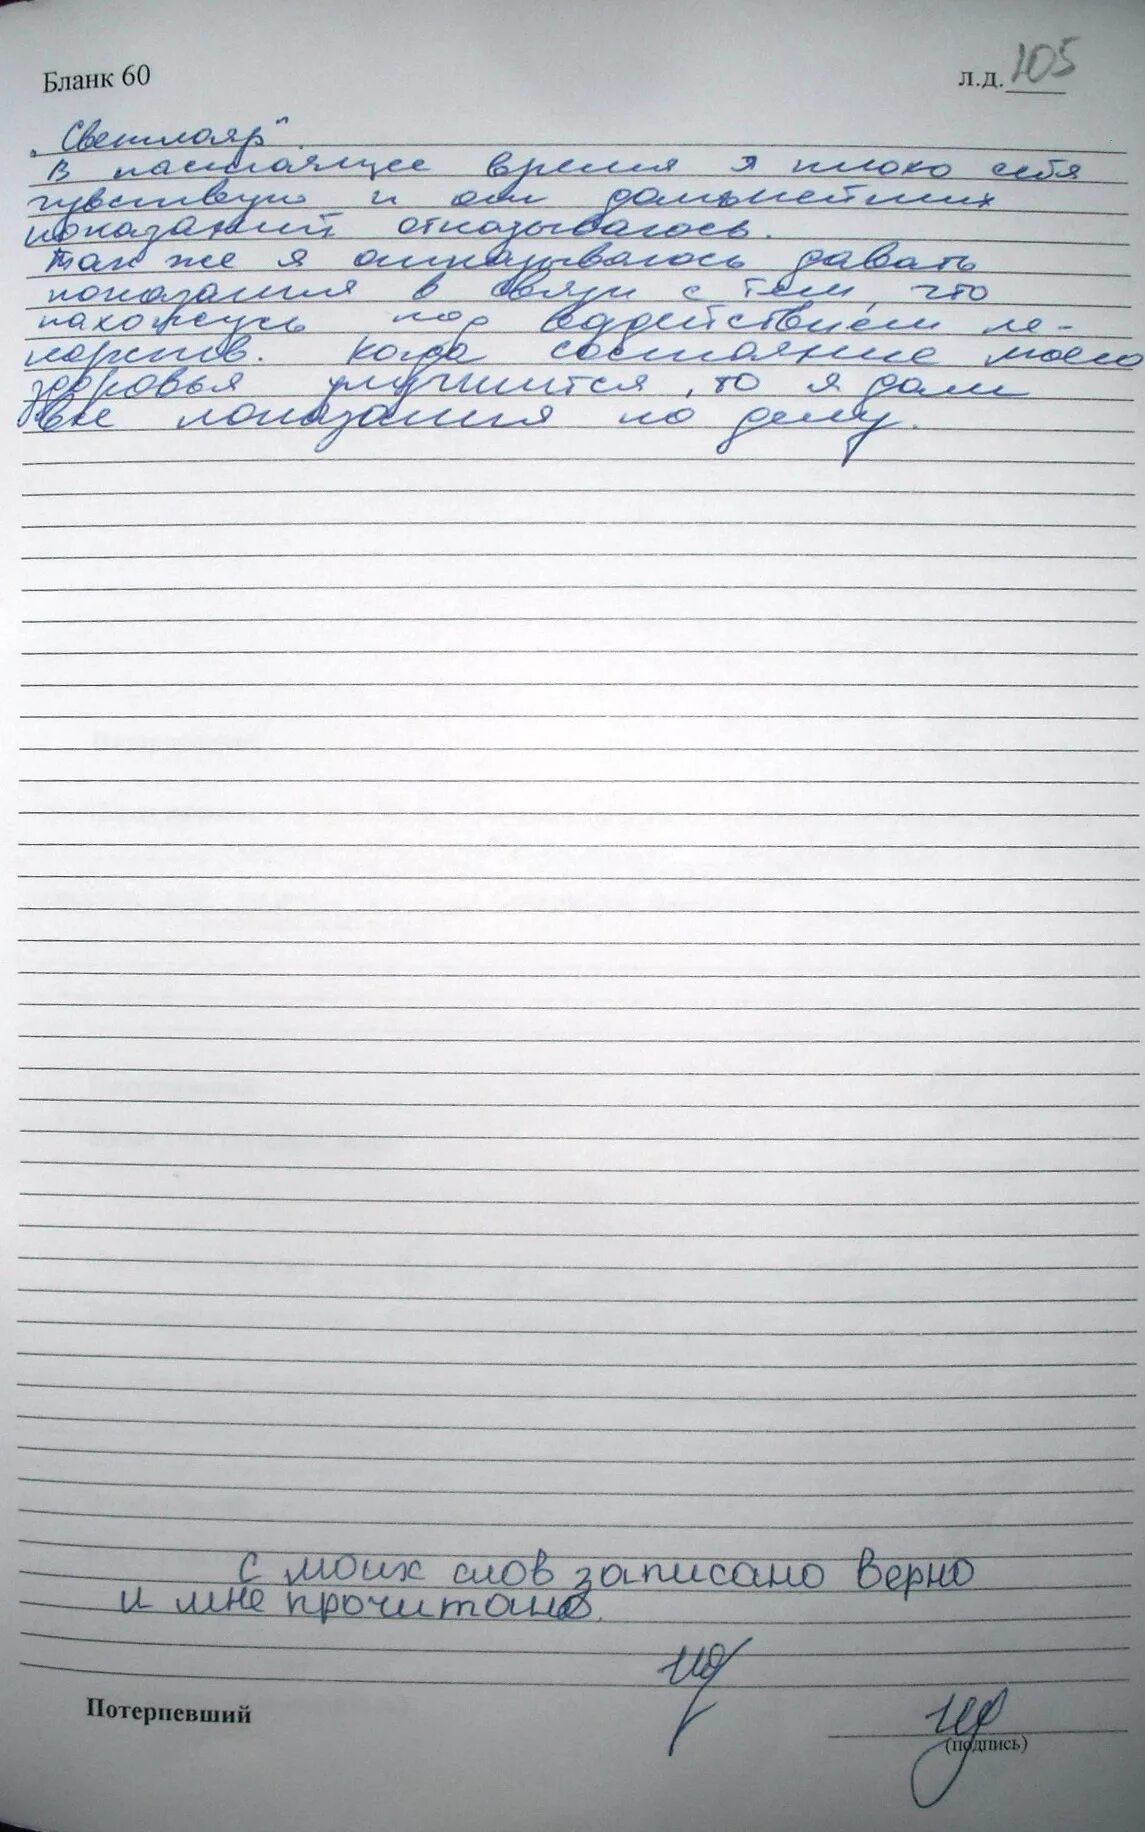 Бланк 60
л.д. 105
„Светлояр".
В настоящее время я плохо себя
чувствую и от дальнейших
показаний отказываюсь.
Так же я отказываюсь давать
показания в связи с тем, что
нахожусь под воздействием ле-
карств. Когда состояние моего
здоровья улучшится, то я дам
все показания по делу.
С моих слов записано верно
и мне прочитано.
Потерпевший
(подпись)